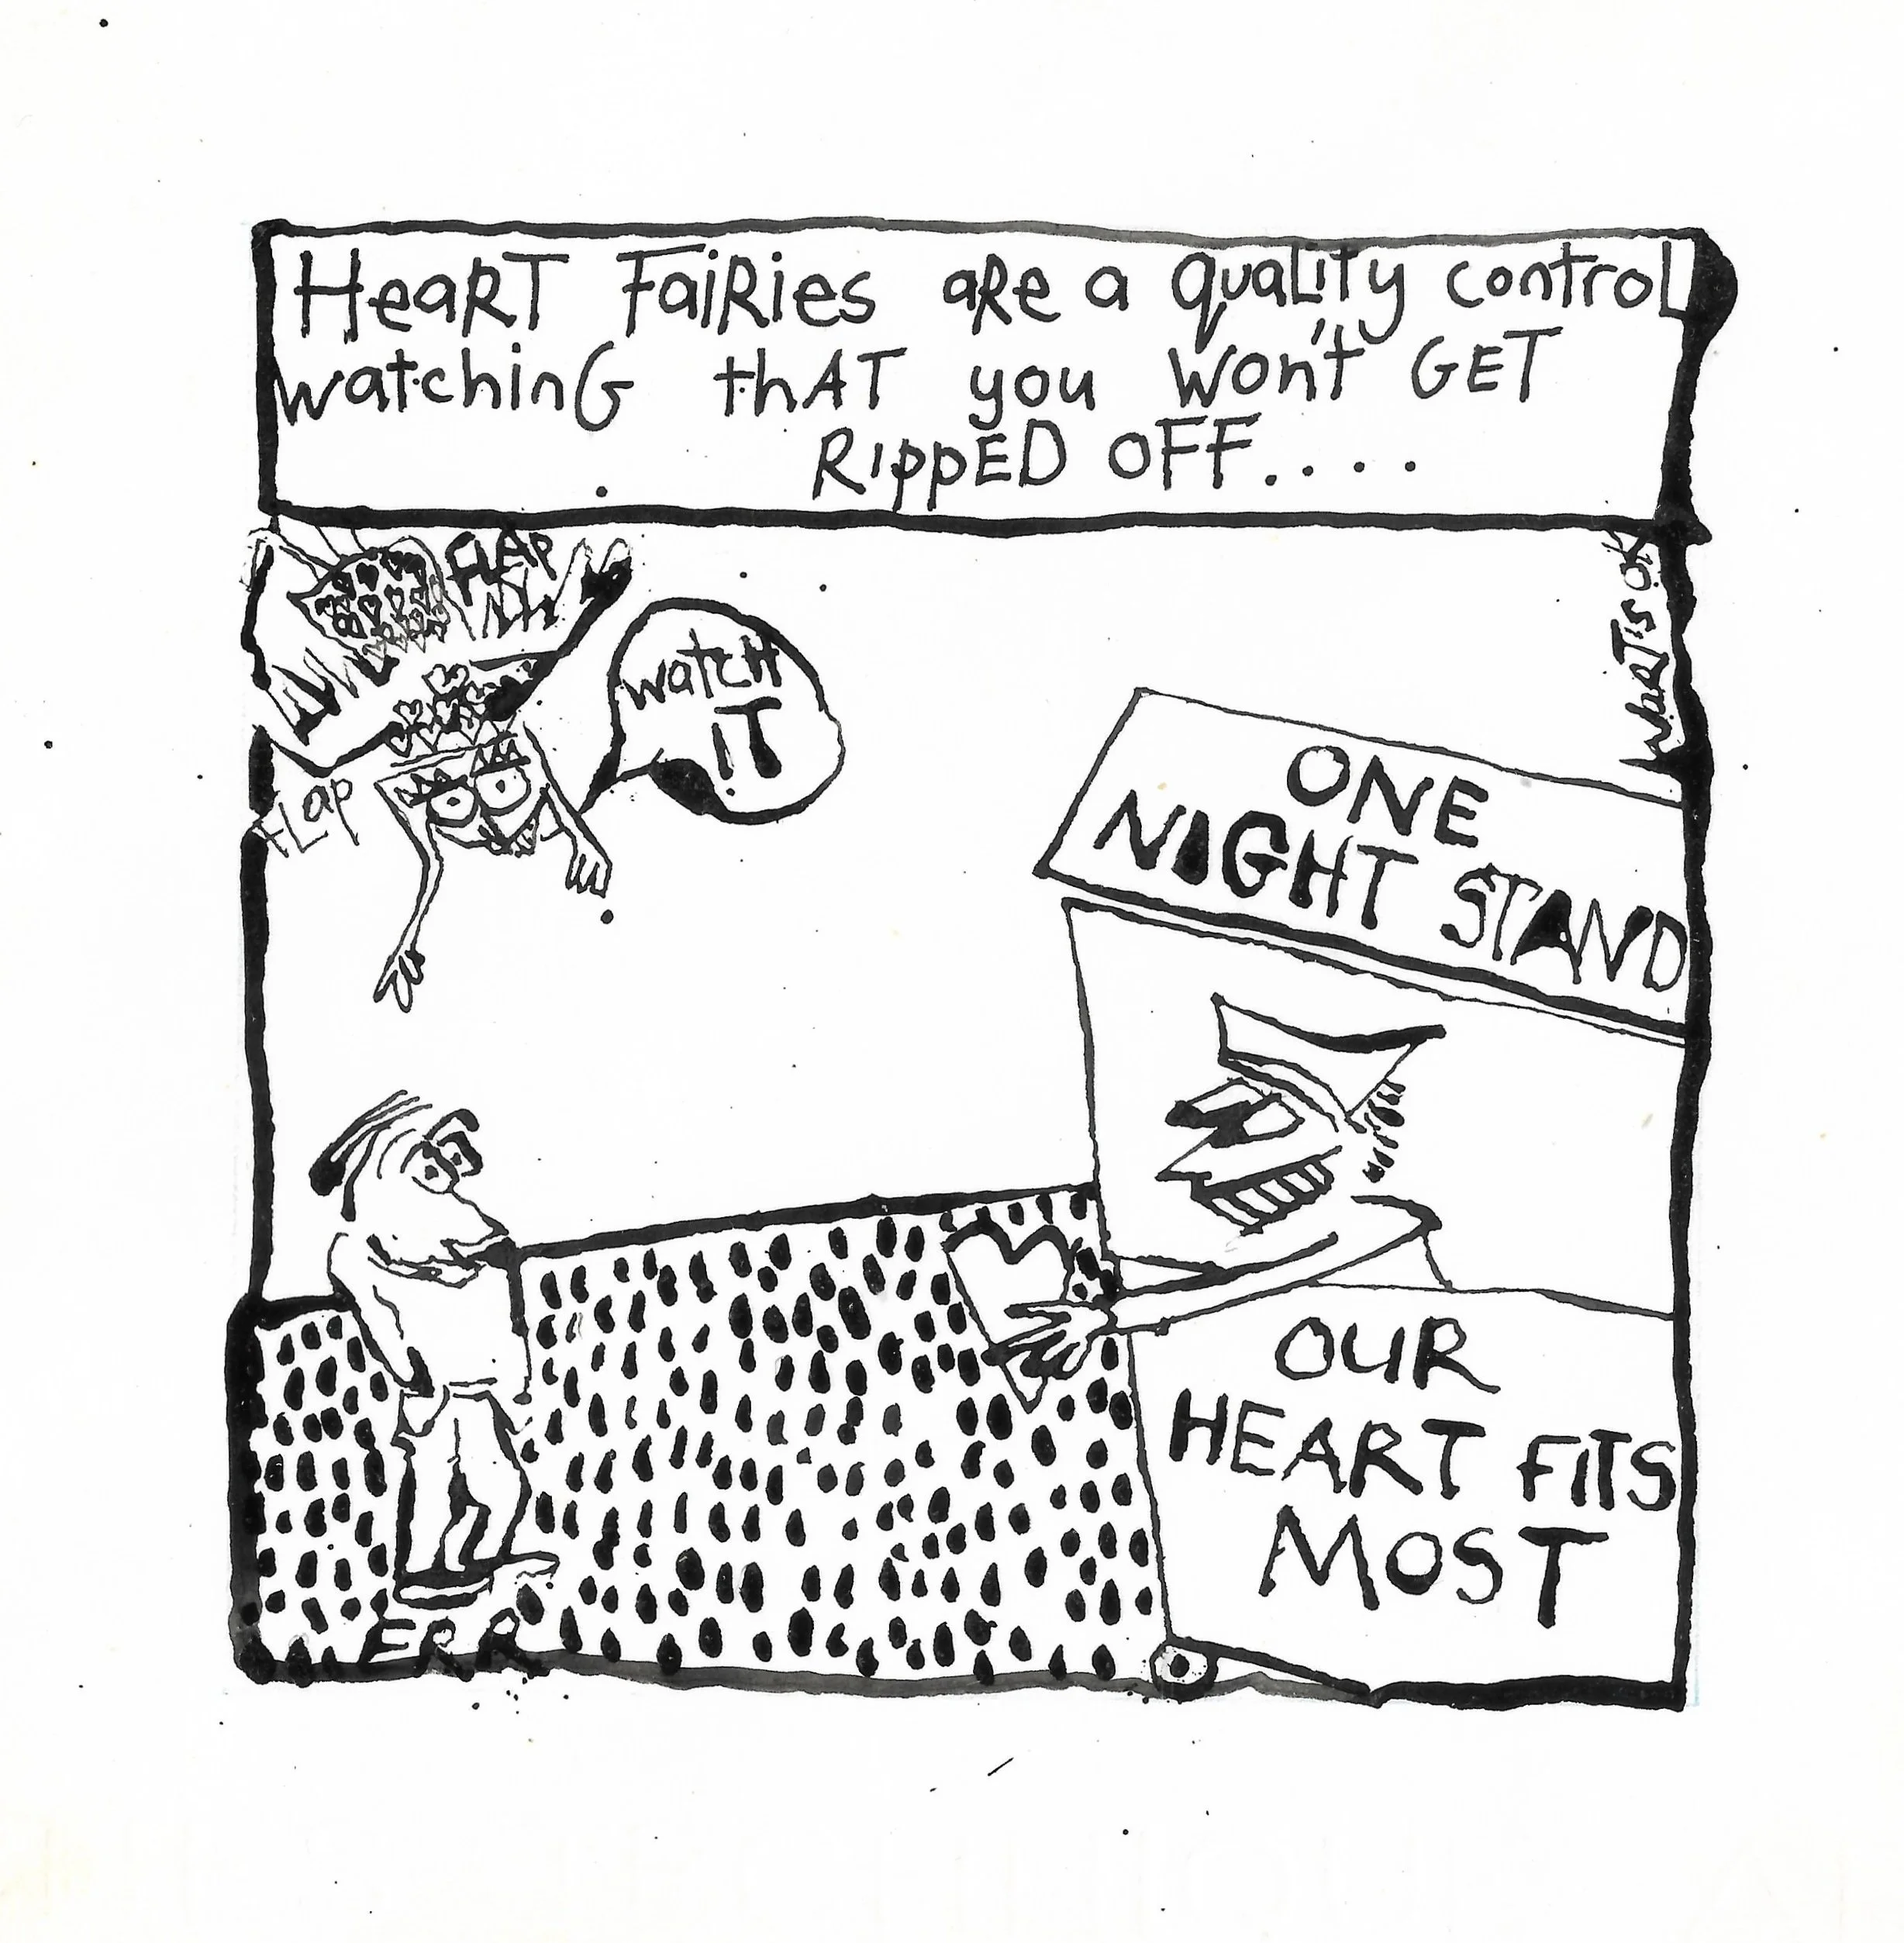 HeaRT FaiRies aRe a quaLiTy controL
watchinG thAT you Won't GET
RippED OFF....
FLAP
FLap
watcH
iT
WaaTisoK
ONE
NIGHT STAND
OUR
HEART FITS
MOST
ERR